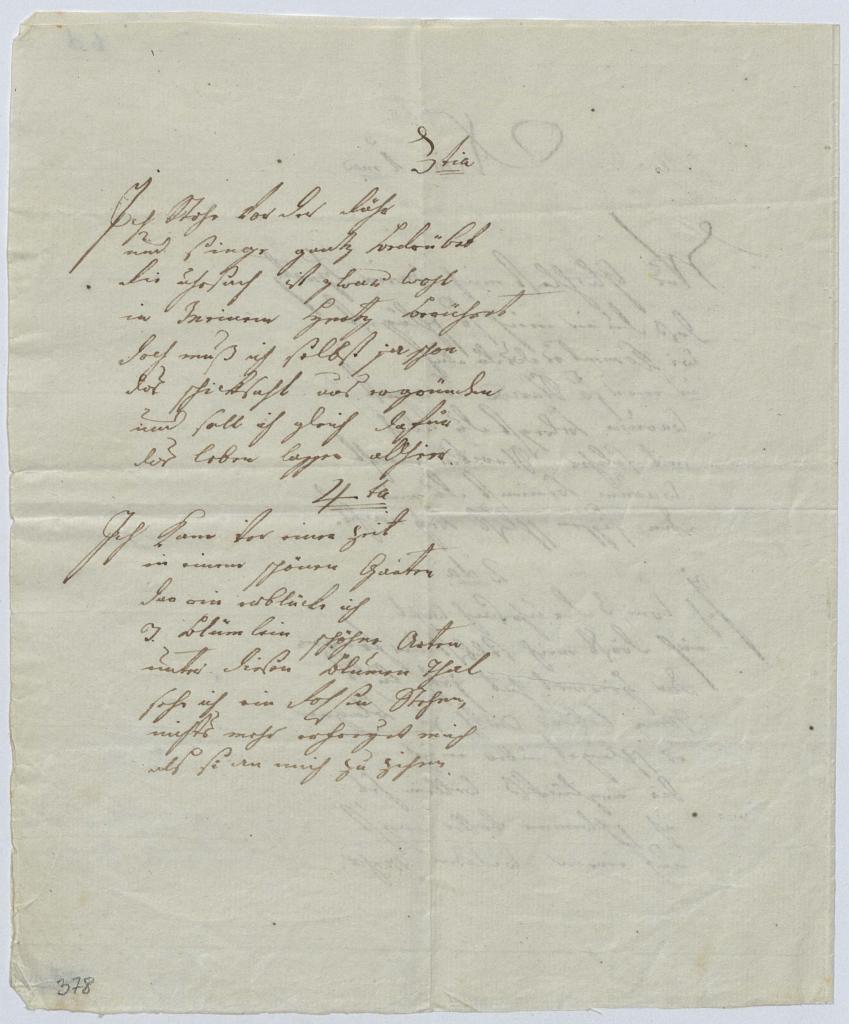 3tia
Ich Stehe vor der Dühr
und singe gantz bedrübet
die uhrsach ist zwar wohl
in Meinem Hertz berührt
doch muß ich selbst ja schon
das schicksahl aus ergründen
und solt ich gleich dafür
das leben lassen allhier
4ta
Ich Kam vor einer zeit
in einem schönen Garten
dar ein erblücke ich
3 blümlein schöhne Arten
unter diesen blumen Thal
sehe ich ein Stehen
nichts mehr mich
als sie an mich zu zihen
378